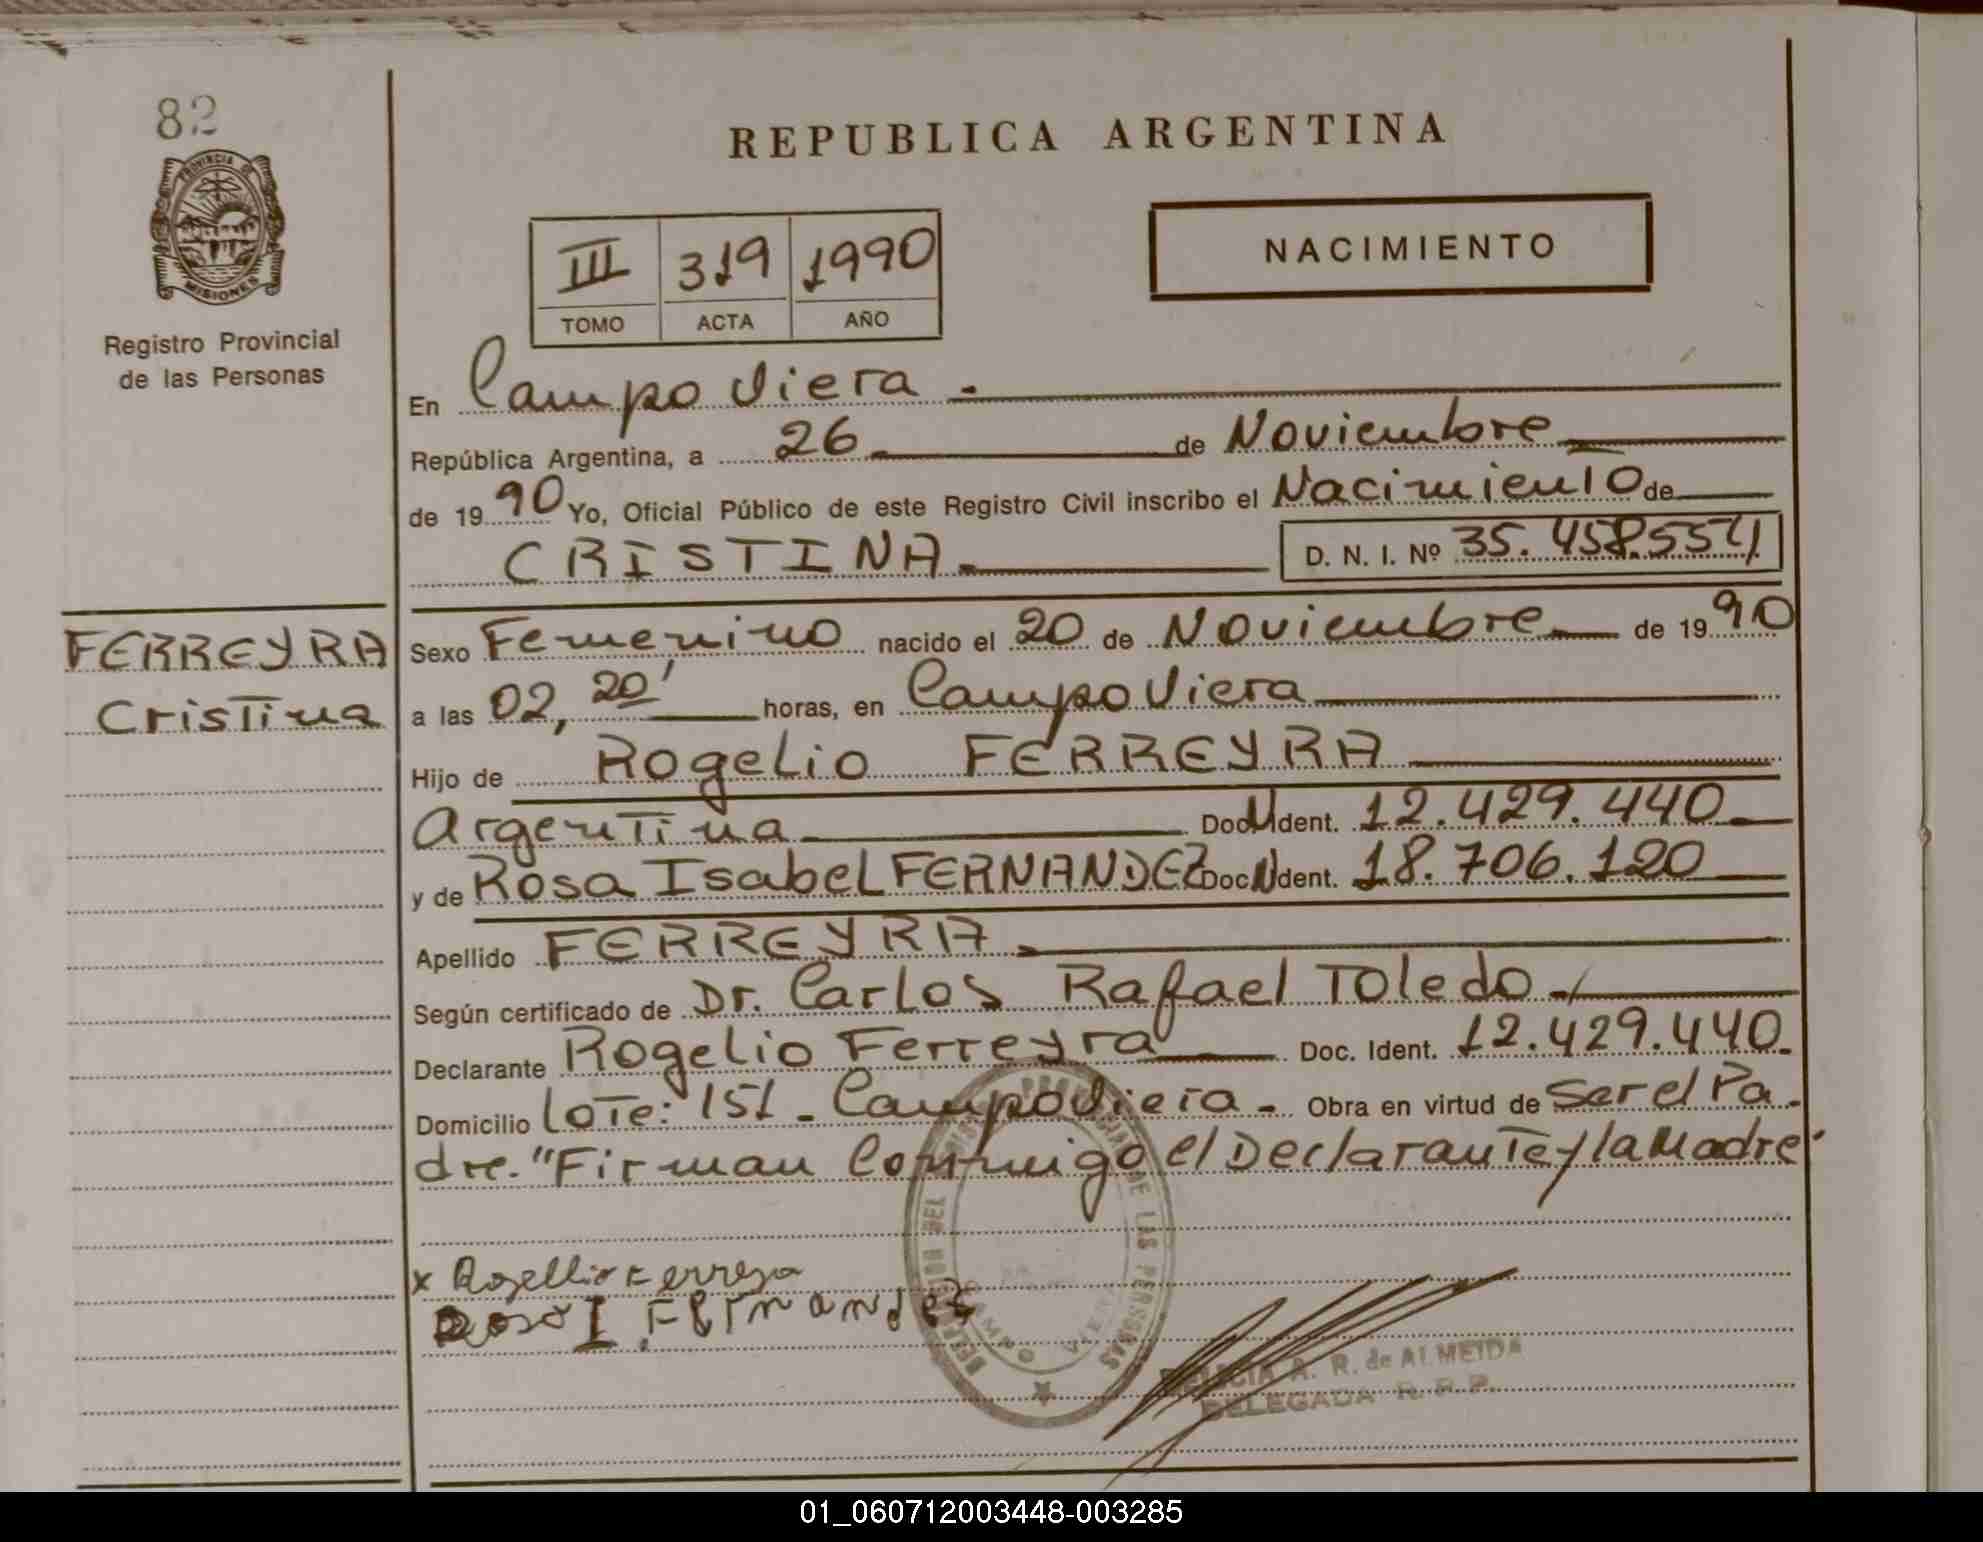 82
PROVINCIA DE
MISIONES
Registro Provincial
de las Personas
REPUBLICA ARGENTINA
III 319 1990
TOMO ACTA AÑO
NACIMIENTO
En Campo Viera.
República Argentina, a 26 de Noviembre
de 1990 Yo, Oficial Público de este Registro Civil inscribo el Nacimiento de
CRISTINA. D. N. I. Nº 35.458.554
FERREYRA
Cristina
Sexo Femenino nacido el 20 de Noviembre de 1990
a las 02, 20' horas, en Campo Viera
Hijo de Rogelio FERREYRA
Argentina Doc N Ident. 12.429.440
y de Rosa Isabel FERNANDEZ Doc N Ident. 18.706.120
Apellido FERREYRA.
Según certificado de Dr. Carlos Rafael Toledo.
Declarante Rogelio Ferreyra Doc. Ident. 12.429.440.
Domicilio Lote: 151 - Campo Viera. Obra en virtud de Ser el Pa-
dre. "Firman Conmigo el Declarante y la Madre"
x Rogellio Ferreyra
Rosa I. Fernandez
DELEGACION DEL REGISTRO PROVINCIAL DE LAS PERSONAS
CAMPO VIERA
DELICIA A. R. de ALMEIDA
DELEGADA R. P. P.
01_060712003448-003285